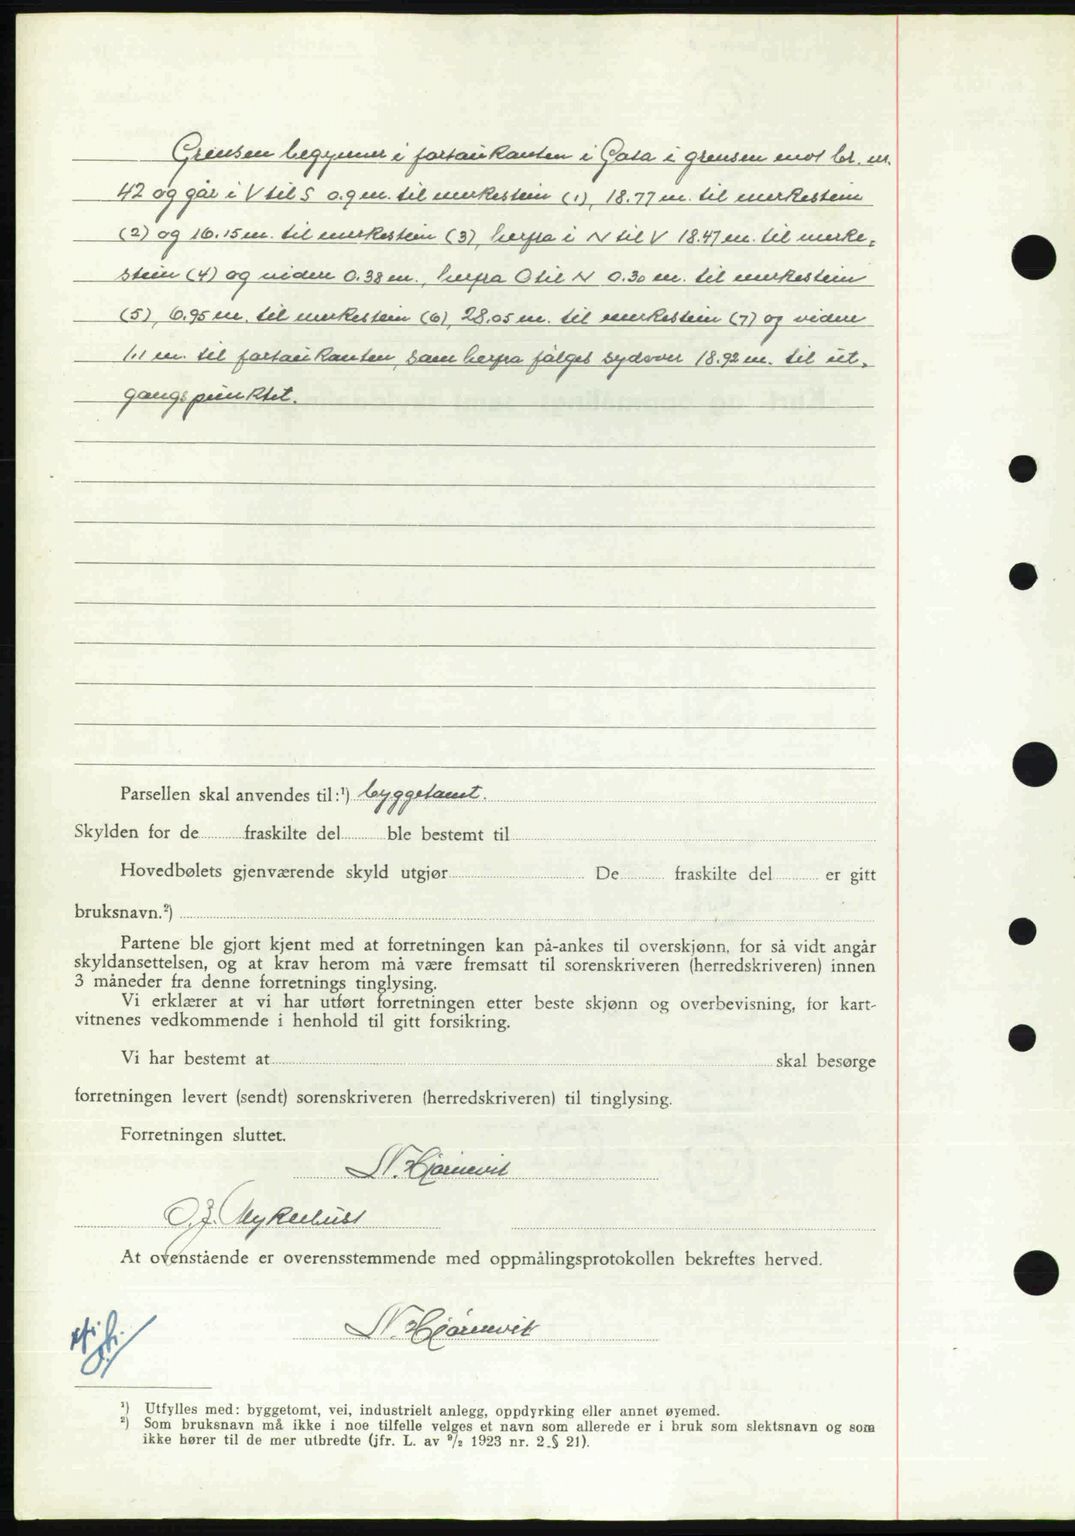 Grensen begynner i fortaukanten i Gata i grensen mot br. nr.
42 og går i V til S 0.9 m. til merkestein (1), 18.77 m. til merkestein
(2) og 16.15 m. til merkestein (3), herfra i N til V 18.47 m. til merke-
stein (4) og videre 0.38 m., herfra O til N 0.30 m. til merkestein
(5), 6.95 m. til merkestein (6), 28.05 m. til merkestein (7) og videre
1.1 m. til fortaukanten, som herfra følges sydover 18.92 m. til ut-
gangspunktet.
Parsellen skal anvendes til:¹) byggetomt.
Skylden for de fraskilte del ble bestemt til
Hovedbølets gjenværende skyld utgjør De fraskilte del er gitt
bruksnavn.²)
Partene ble gjort kjent med at forretningen kan på-ankes til overskjønn, for så vidt angår
skyldansettelsen, og at krav herom må være fremsatt til sorenskriveren (herredskriveren) innen
3 måneder fra denne forretnings tinglysing.
Vi erklærer at vi har utført forretningen etter beste skjønn og overbevisning, for kart-
vitnenes vedkommende i henhold til gitt forsikring.
Vi har bestemt at skal besørge
forretningen levert (sendt) sorenskriveren (herredskriveren) til tinglysing.
Forretningen sluttet.
N. Hjörnevik
O. J. Myklebust
At ovenstående er overensstemmende med oppmålingsprotokollen bekreftes herved.
N. Hjörnevik
¹) Utfylles med: byggetomt, vei, industrielt anlegg, oppdyrking eller annet øyemed.
²) Som bruksnavn må ikke i noe tilfelle velges et navn som allerede er i bruk som slektsnavn og som
ikke hører til de mer utbredte (jfr. L. av ⁹/₂ 1923 nr. 2 § 21).